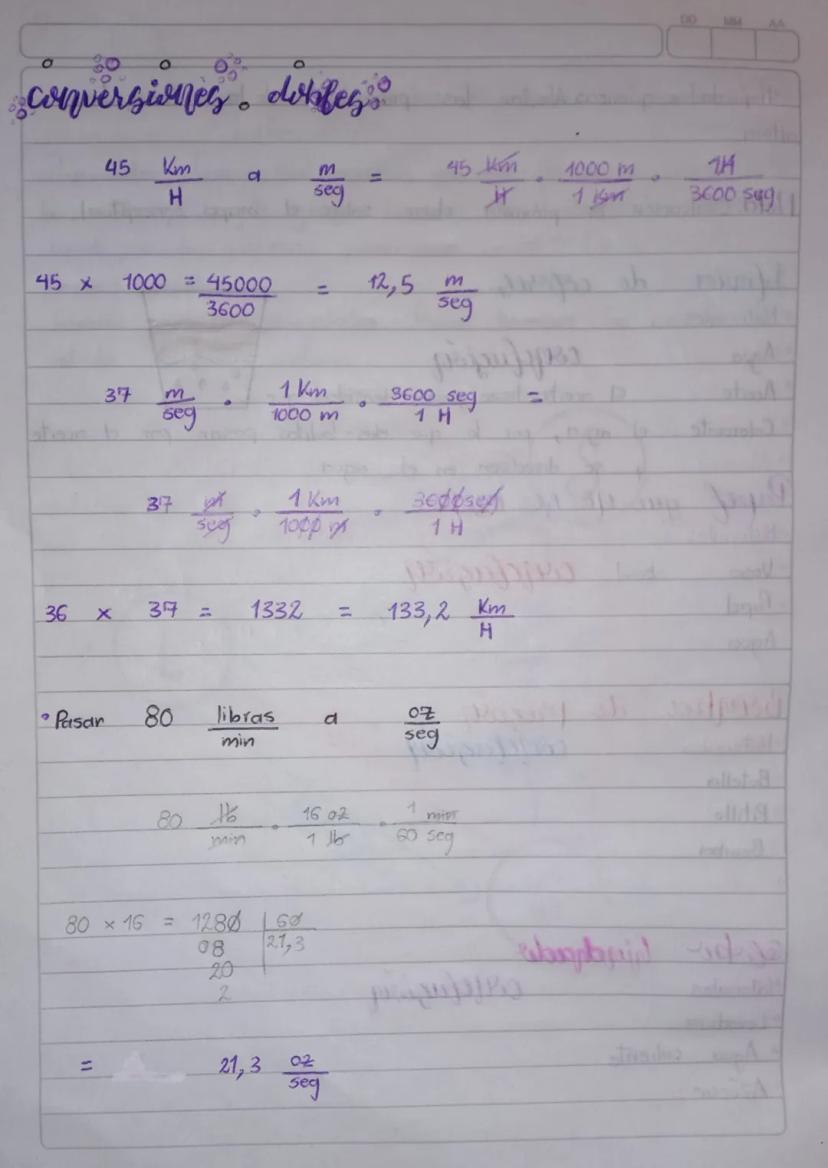 DD MM AA
conversiones. dobles
45 Km/H a m/seg = 45 Km/H . 1000 m/1 Km . 1H/3600 seg
45 x 1000 = 45000/3600 = 12,5 m/seg
37 m/seg . 1 Km/1000 m . 3600 seg/1 H =
37 m/seg . 1 Km/1000 m . 3600seg/1 H
36 x 37 = 1332 = 133,2 Km/H
• Pasar 80 libras/min a oz/seg
80 lb/min . 16 oz/1 lb . 1 min/60 seg
80 x 16 = 1280 | 60
08 21,3
20
2
= 21,3 oz/seg